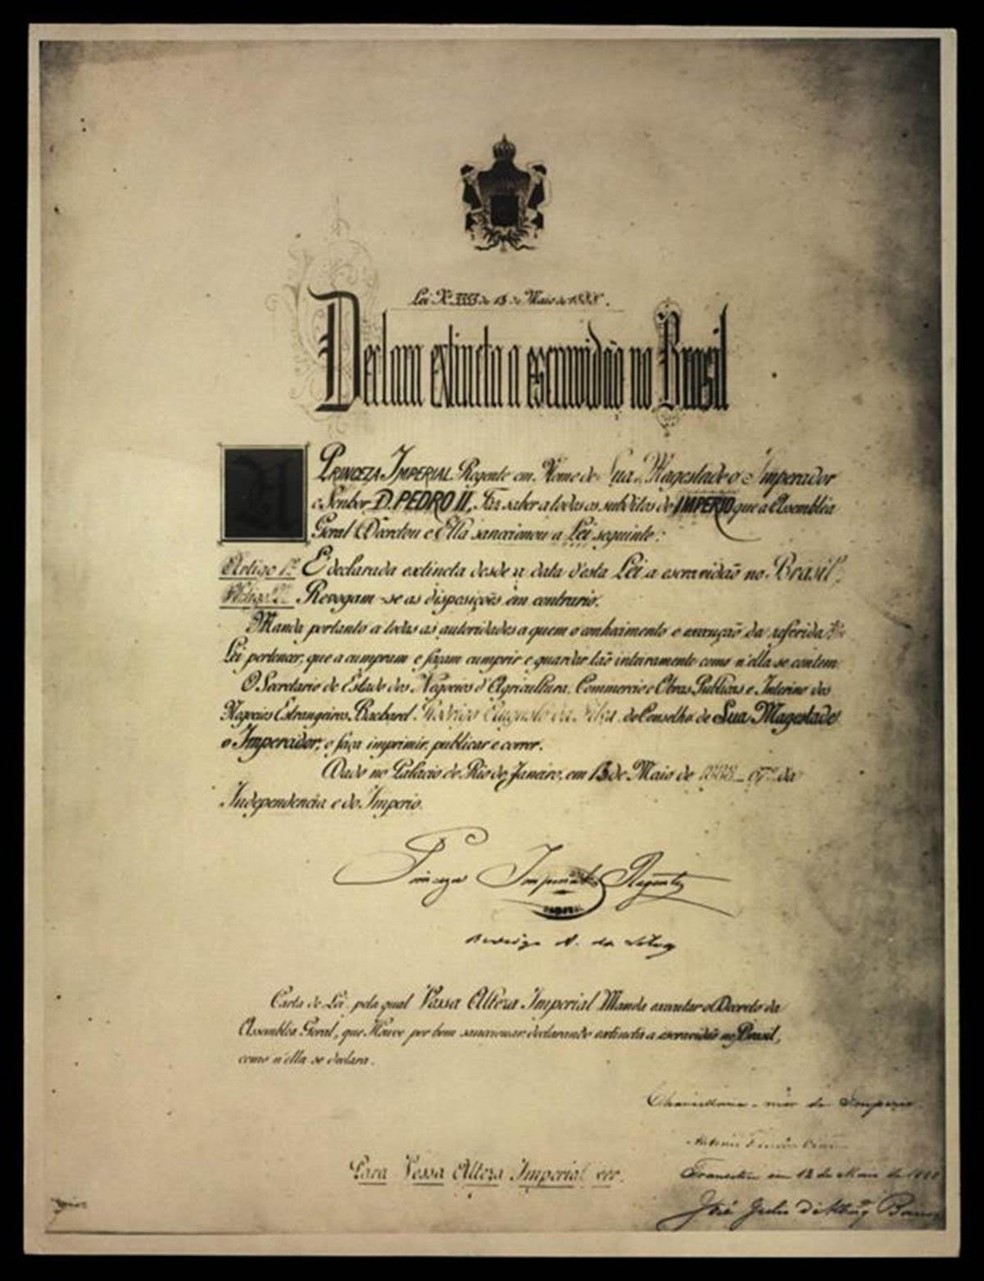 Lei Nº 3353 de 13 de Maio de 1888.
Declara extincta a escravidão no Brasil
A PRINCEZA IMPERIAL Regente em Nome de Sua Magestade o Imperador
o Senhor D. PEDRO II, Faz saber a todos os subditos do IMPERIO que a Assembléa
Geral Decretou e Ella sanccionou a Lei seguinte:
Artigo 1º É declarada extincta desde a data d'esta Lei a escravidão no Brasil.
Artigo 2º Revogam-se as disposições em contrario.
Manda portanto a todas as autoridades a quem o conhecimento e execução da referida
Lei pertencer, que a cumpram e façam cumprir e guardar tão inteiramente como n'ella se contem.
O Secretario de Estado dos Negocios d'Agricultura, Commercio e Obras Publicas e Interino dos
Negocios Estrangeiros, Bacharel Rodrigo Augusto da Silva, do Conselho de Sua Magestade
o Imperador, o faça imprimir, publicar e correr.
Dado no Palacio do Rio de Janeiro, em 13 de Maio de 1888 - 67º da
Independencia e do Imperio.
Princeza Imperial Regente
Rodrigo A. da Silva
Carta de Lei, pela qual Vossa Alteza Imperial Manda executar o Decreto da
Assembléa Geral, que Houve por bem sanccionar declarando extincta a escravidão no Brasil,
como n'ella se declara.
Chancellaria-mór do Imperio.
Antonio Ferreira
Transitou em 13 de Maio de 1888
José Julio d'Albuq Barros
Para Vossa Alteza Imperial ver.